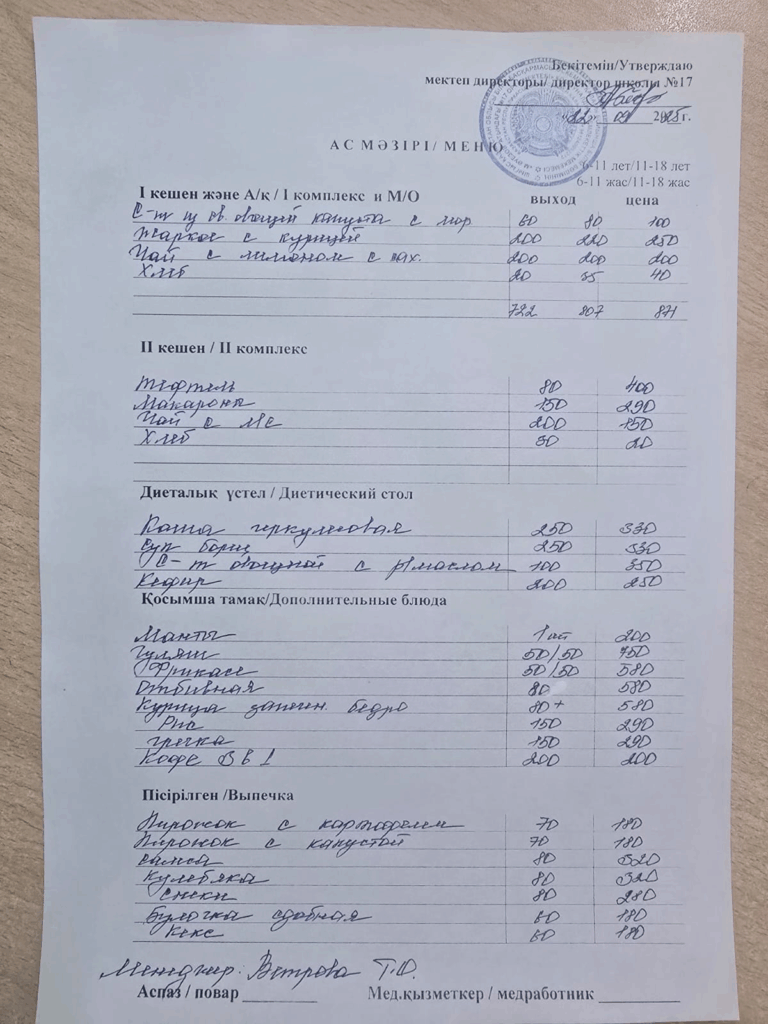 Бекітемін/Утверждаю
мектеп директоры/ директор школы №17
"22" 09 2025 г.
АС МӘЗІРІ/ МЕНЮ
6-11 лет/11-18 лет
6-11 жас/11-18 жас
І кешен және А/қ / І комплекс и М/О выход цена
С-т из св. овощей капуста с мор 60 80 100
Жаркое с курицей 200 220 250
Чай с лимоном с сах. 200 200 200
Хлеб 20 35 40
722 807 871
ІІ кешен / ІІ комплекс
Тефтель 80 400
Макароны 150 290
Чай с м/с 200 150
Хлеб 30 20
Диеталық үстел / Диетический стол
Каша геркулесовая 250 330
Суп борщ 250 530
С-т овощной с р/маслом 100 350
Кефир 200 250
Қосымша тамақ/Дополнительные блюда
Манты 1 шт 200
Гуляш 50/50 750
Фрикасе 50/50 580
Отбивная 80 580
Курица запечен. бедро 80 580
Рис 150 290
гречка 150 290
Кофе 3 в 1 200 200
Пісірілген /Выпечка
Пирожок с картофелем 70 180
Пирожок с капустой 70 180
самса 80 320
кулебяка 80 320
Снеки 80 280
Булочка сдобная 60 180
Кекс 60 180
Менеджер: Ветрова Т.О.
Аспаз / повар Мед.қызметкер / медработник